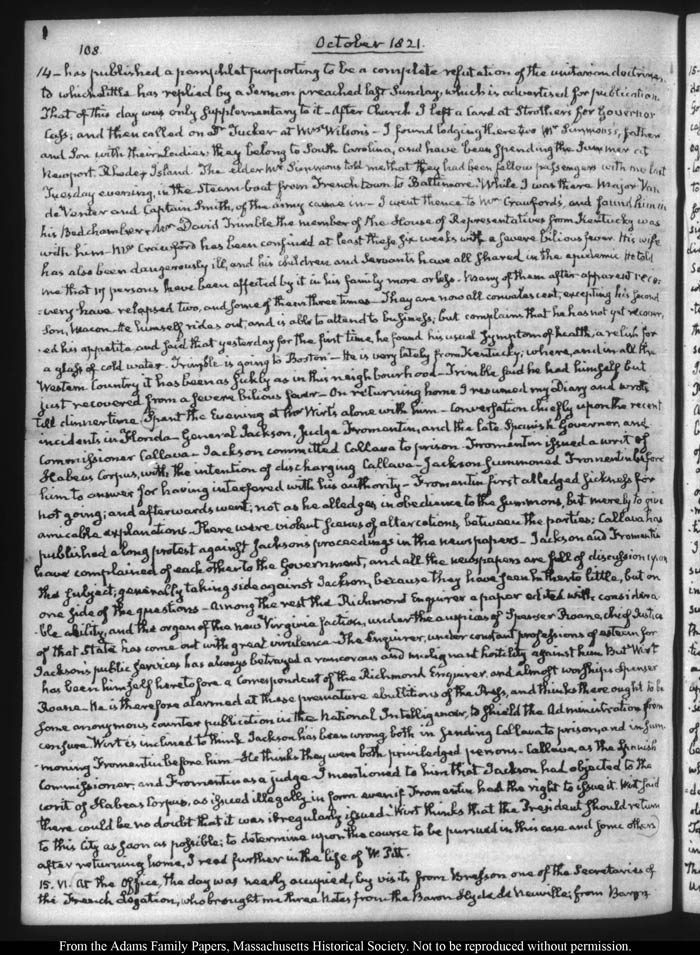 108
October 1821.
14 – has published a pamphlet purporting to be a complete refutation of the unitarian doctrines,
to which Little has replied by a Sermon preached last Sunday, which is advertised for publication.
That of this day was only Supplementary to it – After Church I left a Card at Strothers for Governor
Cass; and then called on Dr Tucker at Mrs Wilson's – I found lodging there two Mr Simmons's, father
and Son with their Ladies; they belong to South Carolina, and have been Spending the Summer at
Newport, Rhode Island. The elder Mr Simmons told me that they had been fellow passengers with me last
Tuesday evening, in the Steam boat from French town to Baltimore. While I was there Major Van
de Venter and Captain Smith, of the army came in – I went thence to Mr Crawford's, and found him in
his Bedchamber; Mr David Trimble the member of the House of Representatives from Kentucky was
with him. Mr Crawford has been confined at least these Six weeks with a Severe bilious fever. His wife
has also been dangerously ill, and his children and Servants have all Shared in the epidemic. He told
me that 19 persons have been affected by it in his family more or less – Many of them after apparent reco-
-very have relapsed two, and Some of them three times – They are now all convalescent, excepting his Second
Son, Macon. He himself rides out, and is able to attend to business; but complain that he has not yet recover-
-ed his appetite and Said that yesterday for the first time, he found his usual Symptom of health, a relish for
a glass of cold water. Trimble is going to Boston – He is very lately from Kentucky; where, and in all the
Western Country it has been as Sickly as in this neighbourhood – Trimble Said he had himself but
just recovered from a Severe bilious fever – On returning home I resumed my Diary and wrote
till dinner time. I Spent the Evening at Mr Wirt's alone with him – Conversation chiefly upon the recent
incidents in Florida – General Jackson, Judge Fromentin, and the late Spanish Governor, and
Commissioner Callava – Jackson committed Callava to prison. Fromentin issued a writ of
Habeas Corpus, with the intention of discharging Callava – Jackson Summoned Fromentin before
him to answer for having interfered with his authority – Fromentin first alledged Sickness for
not going; and afterwards went; not as he alledges in obedience to the Summons, but merely to give
amicable explanations. There were violent Scenes of altercations, between the parties; Callava has
published a long protest against Jackson's proceedings in the newspapers – Jackson and Fromentin
have complained of each other to the Government, and all the newspapers are full of discussion upon
the Subject; generally taking side against Jackson, because they have Seen hitherto little, but on
one Side of the questions – Among the rest the Richmond Enquirer a paper edited with considera-
ble ability, and the organ of the new Virginia faction, under the auspices of Spenser Roane, chief Justice
of that State has come out with great virulence – The Enquirer, under constant professions of esteem for
Jackson's public Services has always betrayed a rancorous and malignant hostility against him. But Wirt
has been himself heretofore a Correspondent of the Richmond Enquirer, and almost worships Spenser
Roane. He is therefore alarmed at these premature ebullitions of the Press, and thinks there ought to be
Some anonymous counter publication in the National Intelligencer, to Shield the Administration from
censure. Wirt is inclined to think Jackson has been wrong both in Sending Callava to prison, and in Sum-
-moning Fromentin before him – He thinks they were both priviledged persons – Callava, as the Spanish
Commissioner; and Fromentin as a judge. I mentioned to him that Jackson had objected to the
writ of Habeas Corpus, as issued illegally in form even if Fromentin had the right to issue it. Wirt Said
there could be no doubt that it was irregularly issued – Wirt thinks that the President Should return
to this City as Soon as possible; to determine upon the course to be pursued in this case and Some others
after returning home, I read further in the life of W. Pitt.
15. VI. At the Office, the day was nearly occupied, by visits from Bresson one of the Secretaries of
the French Legation, who brought me three Notes from the Baron Hyde de Neuville; from Baron
From the Adams Family Papers, Massachusetts Historical Society. Not to be reproduced without permission.